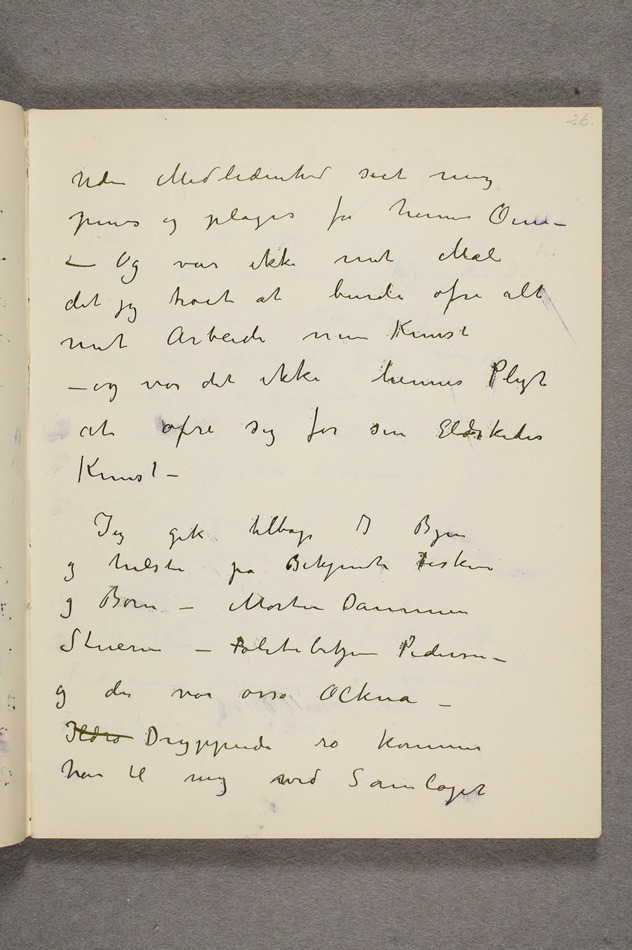 26.
Uden Medlidenhed seet mig
pines og plages for hennes Öine –
– Og var ikke mit Mål
det jeg troet at burde ofre alt
mit Arbeide min Kunst
– og var det ikke hennes Pligt
at ofre sig for sin Elskedes
Kunst –
Jeg gik tilbage I Byen
og hilste på Bekjendte Fiskere
og Börn – Morten Dammen
Stueren – Politibetjen Pedersen –
og der var osså Ockna –
Dryppende så kommer
han til mig ved Samlaget